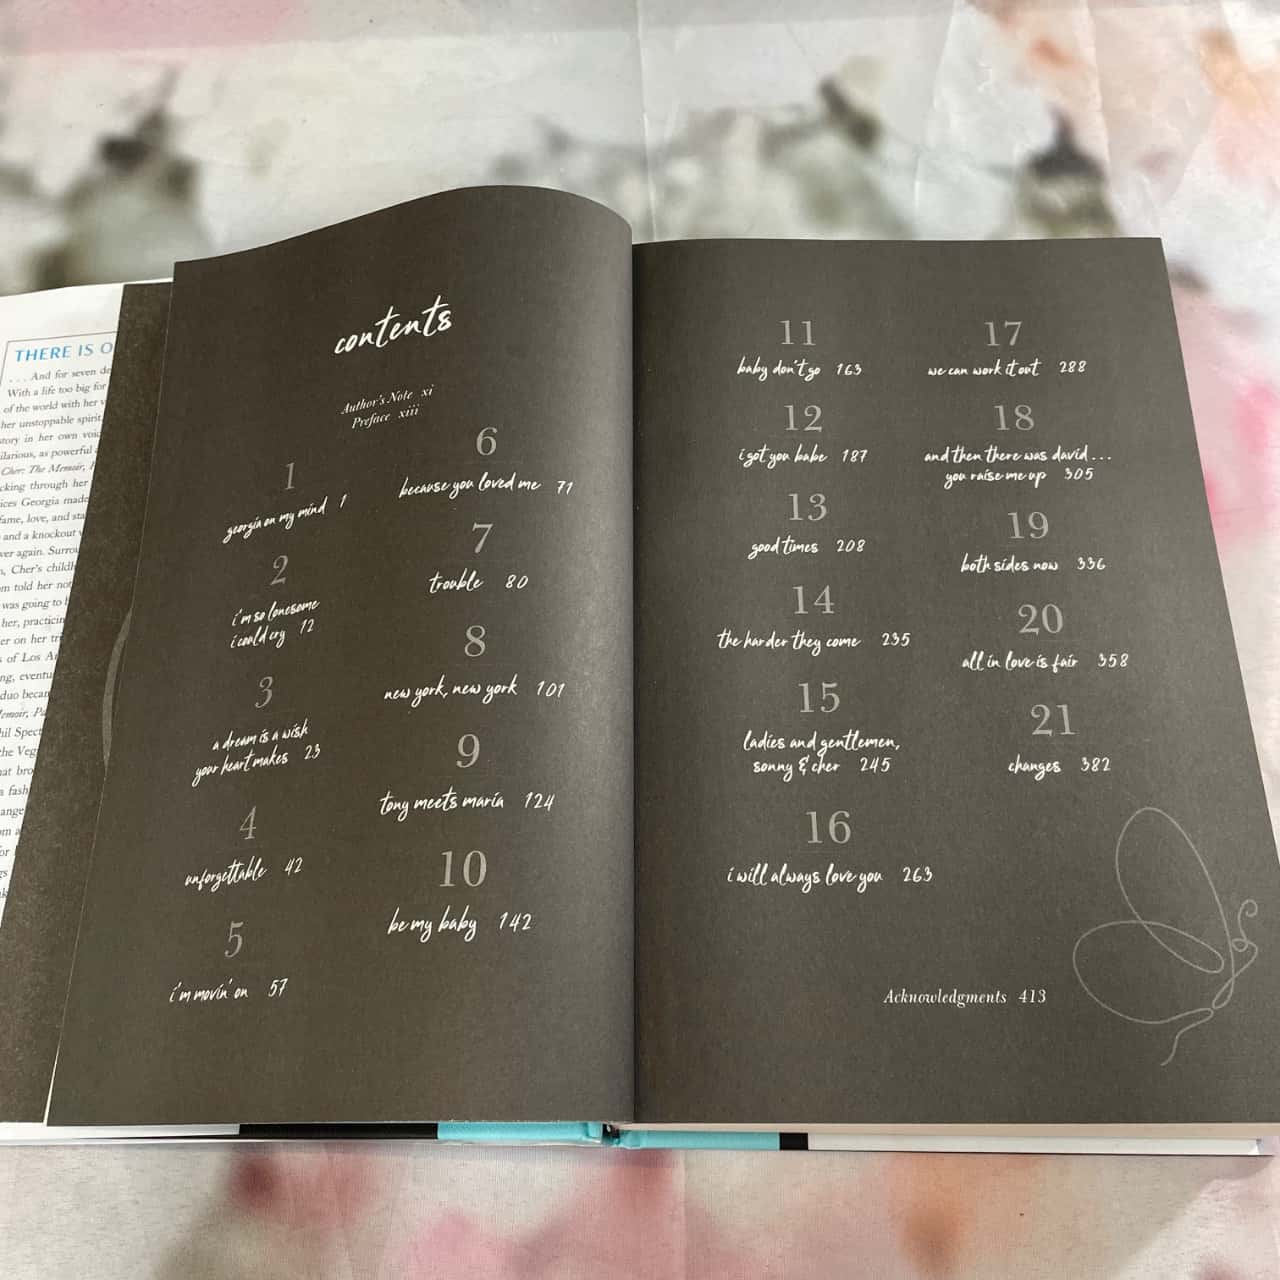 THERE IS O
. . . And for seven de
With a life too big for
of the world with her
her unstoppable spirit
story in her own voi
ilarious, as powerful
Cher: The Memoir, P
cking through her
ices Georgia made
fame, love, and sta
and a knockout
ver again. Surrou
, Cher's childh
om told her not
was going to
her, practicin
er on her tri
s of Los An
ng, eventu
duo becam
emoir, Pa
hil Spect
the Veg
hat bro
a fash
ange
om a
for
contents
Author's Note xi
Preface xiii
1
georgia on my mind 1
2
i'm so lonesome
i could cry 12
3
a dream is a wish
your heart makes 23
4
unforgettable 42
5
i'm movin' on 57
6
because you loved me 71
7
trouble 80
8
new york, new york 101
9
tony meets maria 124
10
be my baby 142
11
baby don't go 163
12
i got you babe 187
13
good times 208
14
the harder they come 235
15
ladies and gentlemen,
sonny & cher 245
16
i will always love you 263
17
we can work it out 288
18
and then there was david . . .
you raise me up 305
19
both sides now 336
20
all in love is fair 358
21
changes 382
Acknowledgments 413